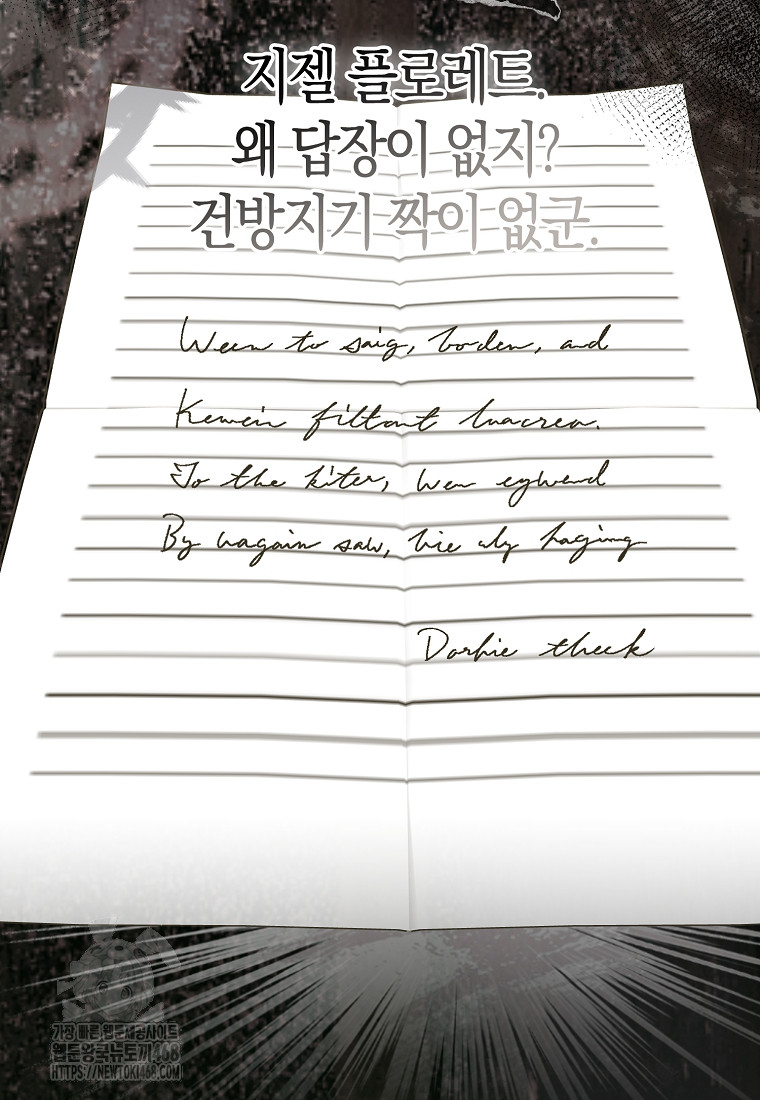 지젤 플로레트.
왜 답장이 없지?
건방지기 짝이 없군.
Ween to saig, borden, and
Kewein filtont luacrea.
To the kiter, wen eywend
By wagain saw, hie uly haging
Dorhie theek
가장 빠른 웹툰제공사이트
웹툰왕국뉴토끼468
HTTPS://NEWTOKI468.COM